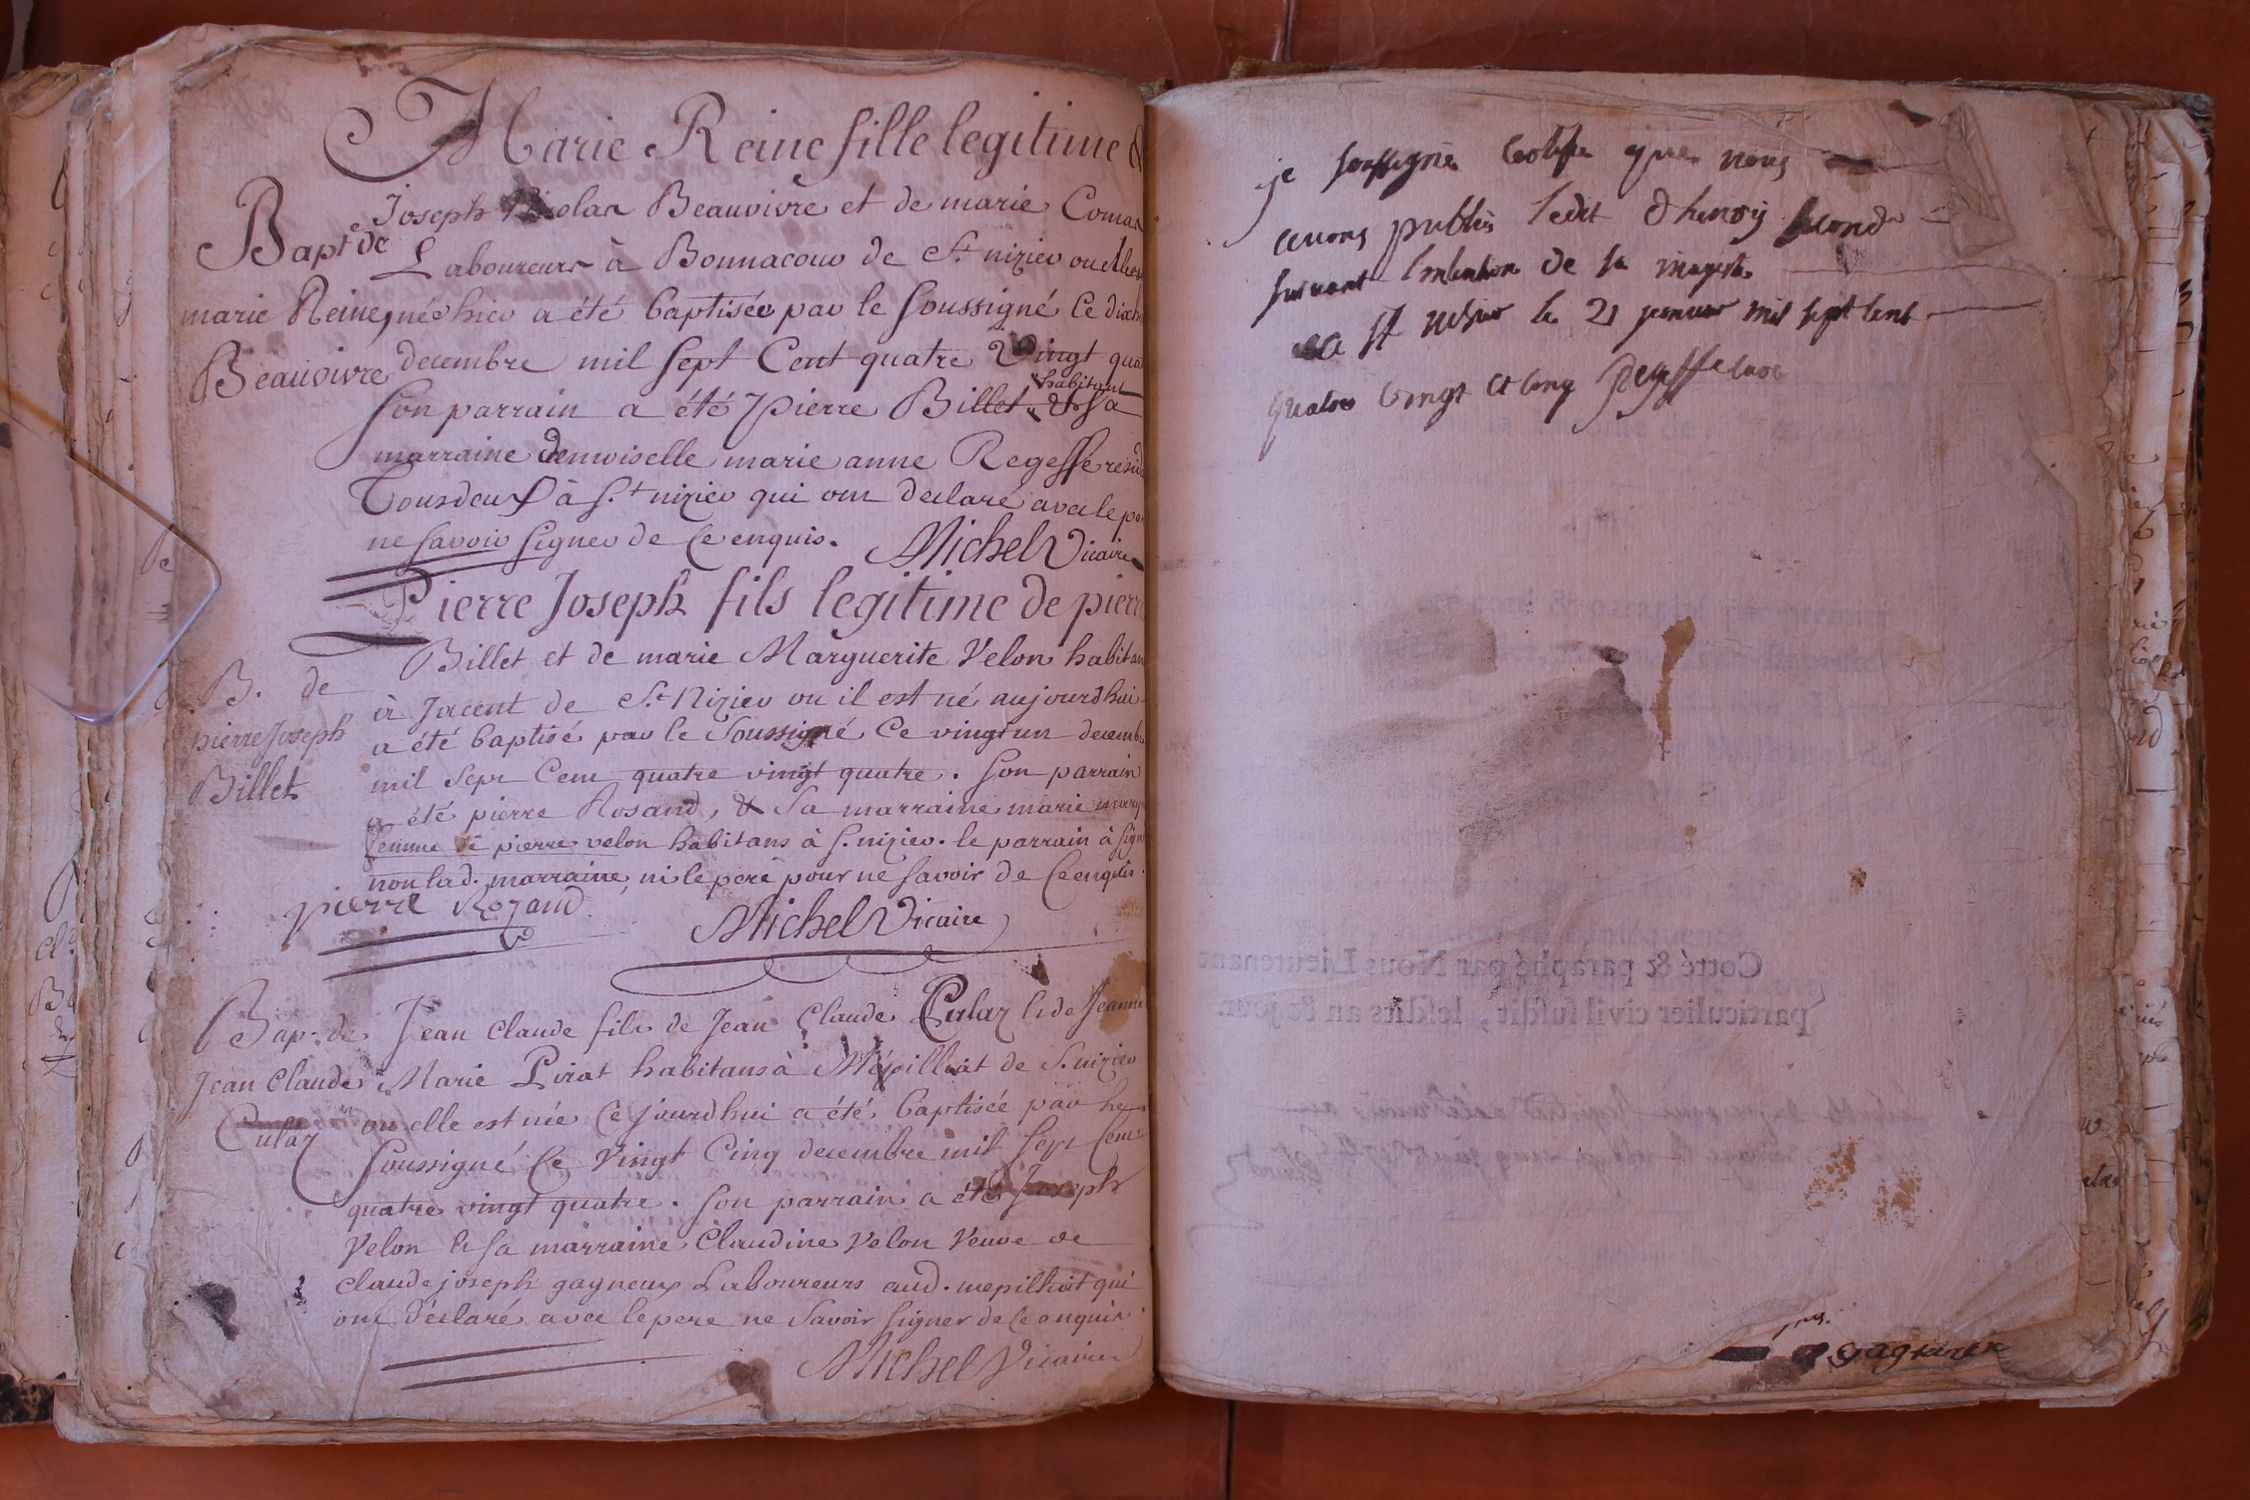 Marie Reine fille legitime
Joseph Beauvivre et de marie
Bapt.e de
Laboureurs à Bonnacouv de St. niziev ou
marie Reine née hiev a été baptisée pav le soussigné Ce
Beauvivre decembre mil sept Cent quatre vingt
habitant
son parrain a été pierre Billet & sa
marraine demoiselle marie anne Regeffe
Tousdeux à s.t niziev qui ont declaré avec le
ne savoir signer de ce enquis. Michel Vicaire
Pierre Joseph fils legitime de pierre
Billet et de marie Marguerite Velon
B. de
à Jacent de St. Niziev ou il est né aujourdhui
pierre Joseph
a été baptisé pav le Soussigné Ce vingt un
Billet
mil Sept Cent quatre vingt quatre. Son parrain
a été pierre Rosand, & Sa marraine marie
femme de pierre velon habitans à s. niziev. le parrain à
non lad. marraine, ni le pere pour ne savoir de Ce enquis.
pierre Rozand Michel Vicaire
Bap. de Jean Claude fils de Jean Claude Culaz & de Jeanne
Jean Claude Marie Pirat habitans à Mépilliat de S. niziev
Culaz ou elle est née Ce jourdhui a été baptisée pav le
Soussigné Ce Vingt Cinq decembre mil Sept Cent
quatre vingt quatre. Son parrain a été Joseph
Velon & sa marraine Claudine Velon Veuve de
Claude joseph gagneux Laboureurs aud. mepilliat qui
ont déclaré avec le pere ne savoir signer de Ce enquis
Michel Vicaire
je soussigné Certifie que nous
avons publiés ledit d henrij second
suivant lintention de sa majesté
a st nizier le 21 janvier mil sept cent
quatre vingt et cinq
Cotté & paraphé par Nous Lieutenant
particulier civil susdit, lesdits an & jour.